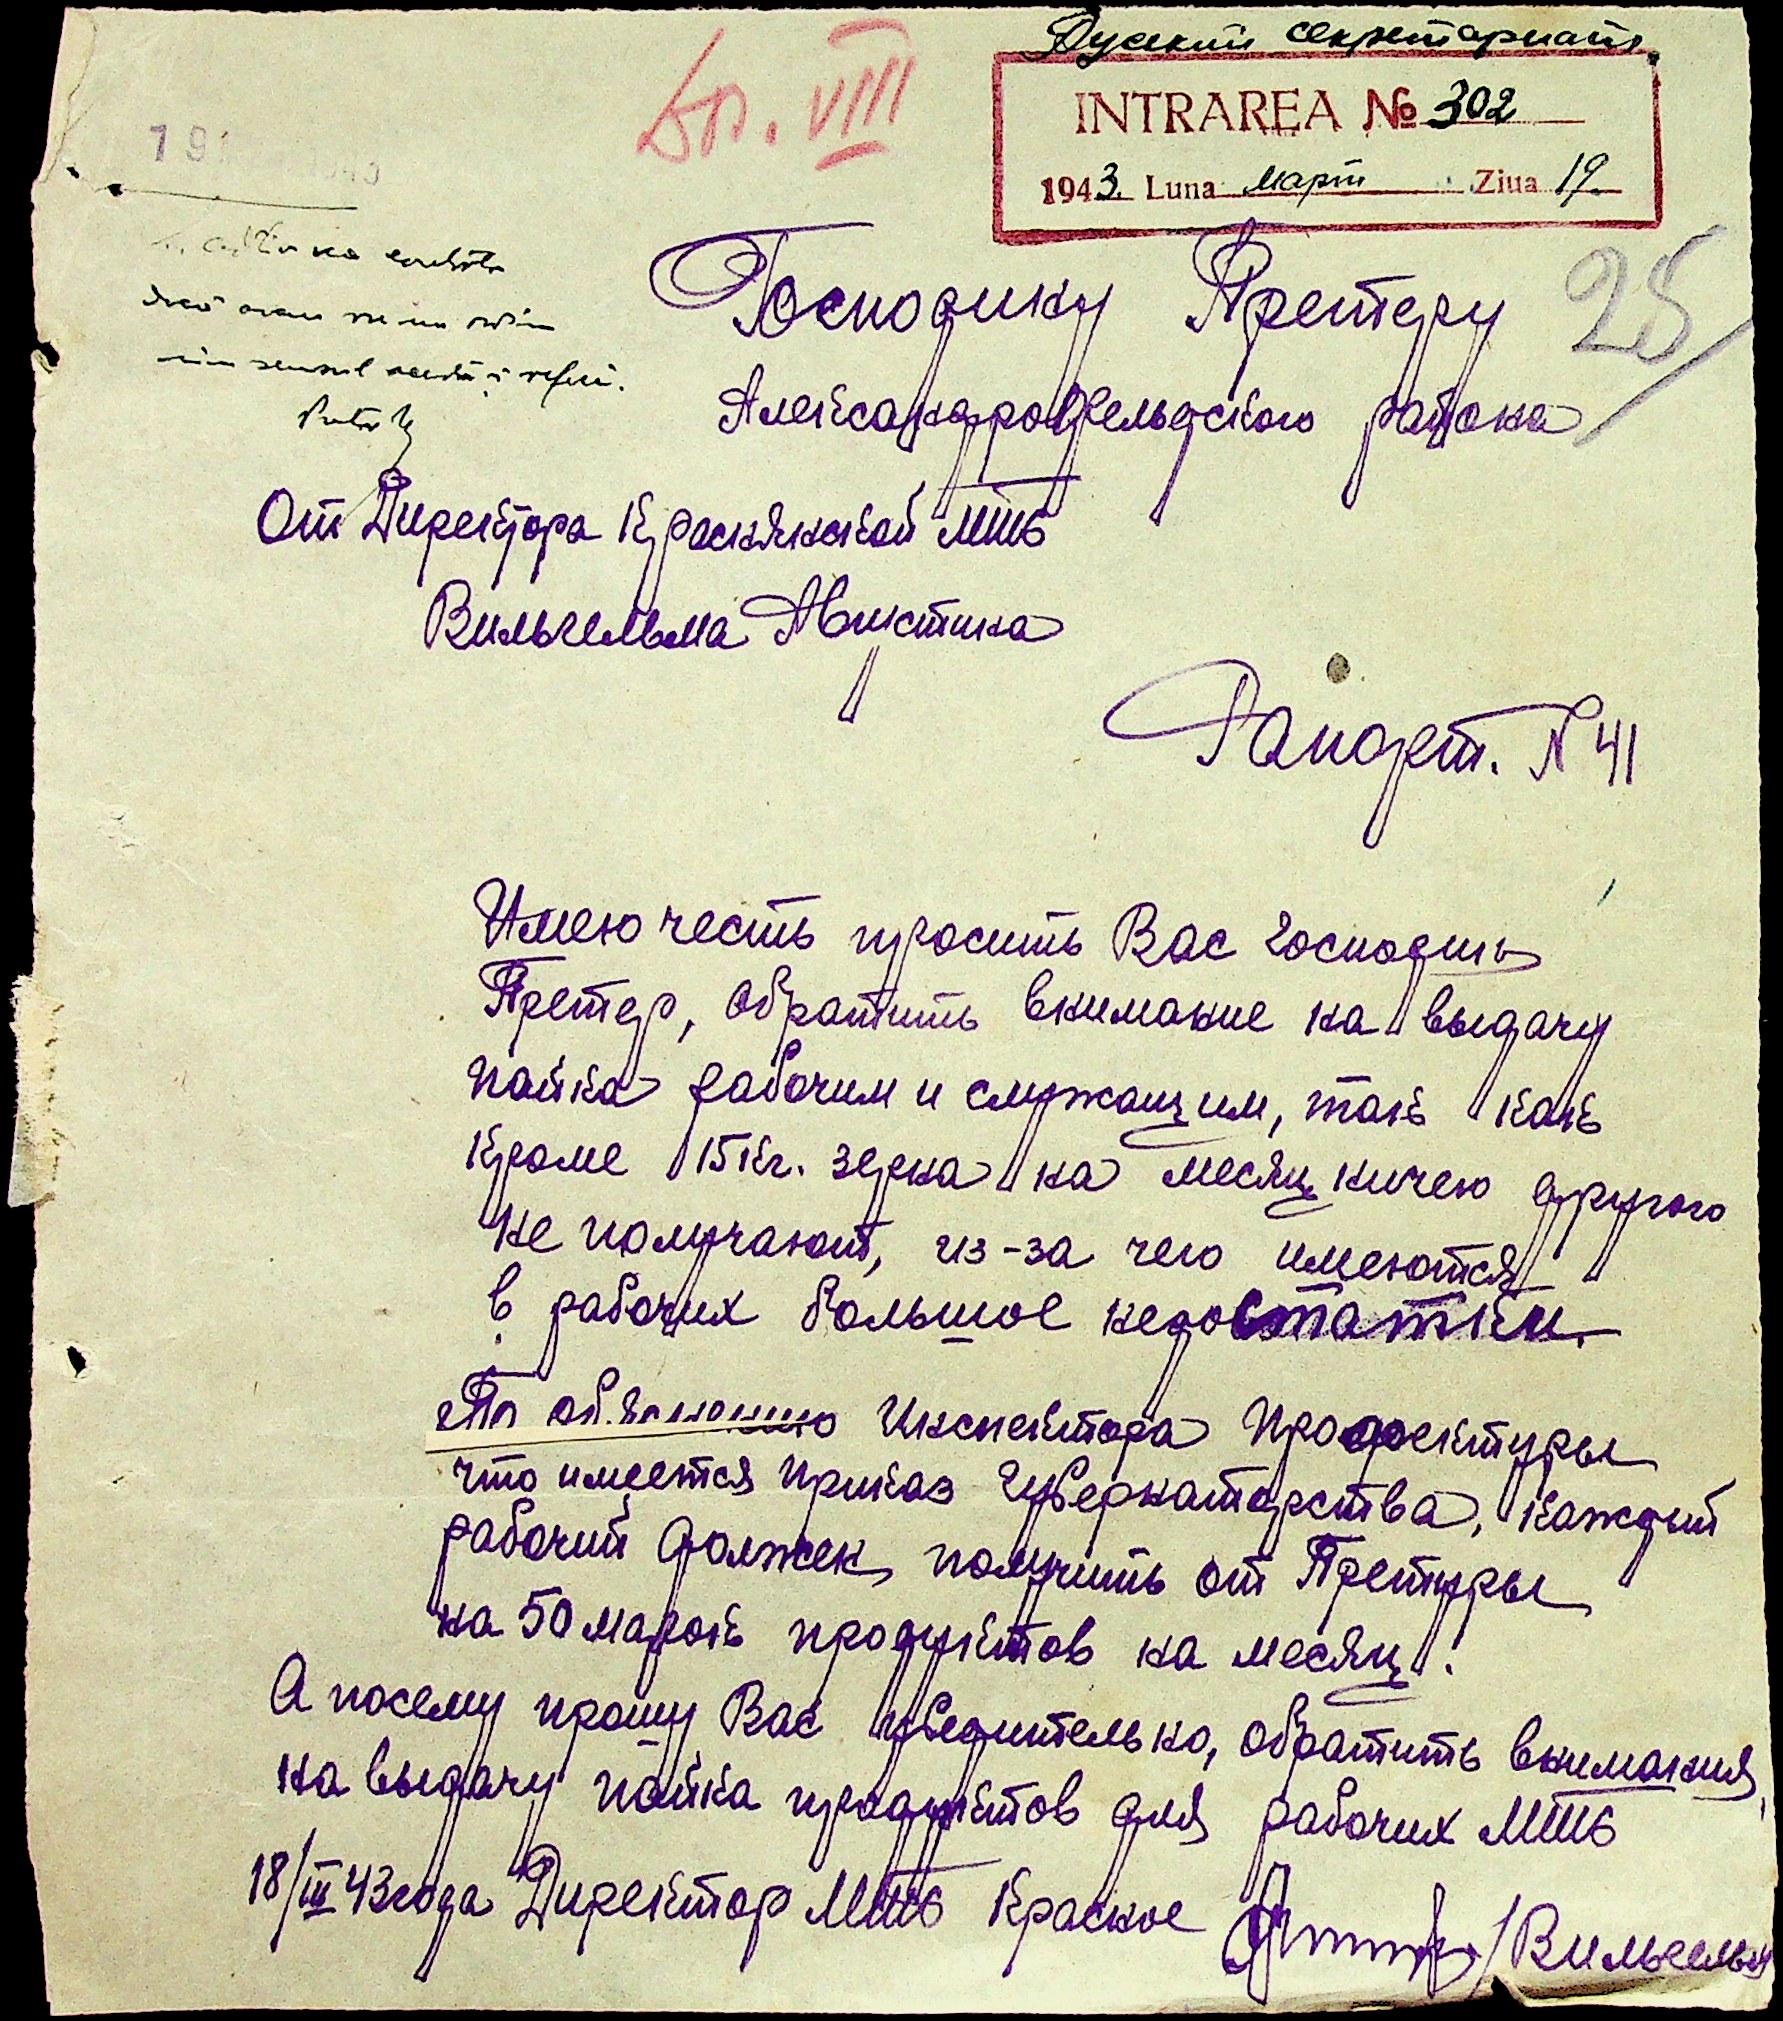 Руский секретариат
INTRAREA № 302
1943. Luna март Ziua 19.
бр. VIII
19
25
Господину Претеру
Александрофельдского района
От Директора Краснянской МТС
Вильгельма Августина
Рапорт. N 41
Имею честь просить Вас господин
Претер, обратить внимание на выдачу
пайка рабочим и служащим, так как
кроме 15 кг. зерна на месяц ничего другого
не получают, из-за чего имеются
в рабочих большое недостатки.
По об.яснению Инспектора Профектуры
что имеется приказ Губернаторства, каждый
рабочий должен получить от Претуры
на 50 марок продуктов на месяц!
А посему прошу Вас убедительно, обратить внимания,
на выдачу пайка продуктов для рабочих МТС
18/III 43 года Директор МТС Красное /Вильгельм